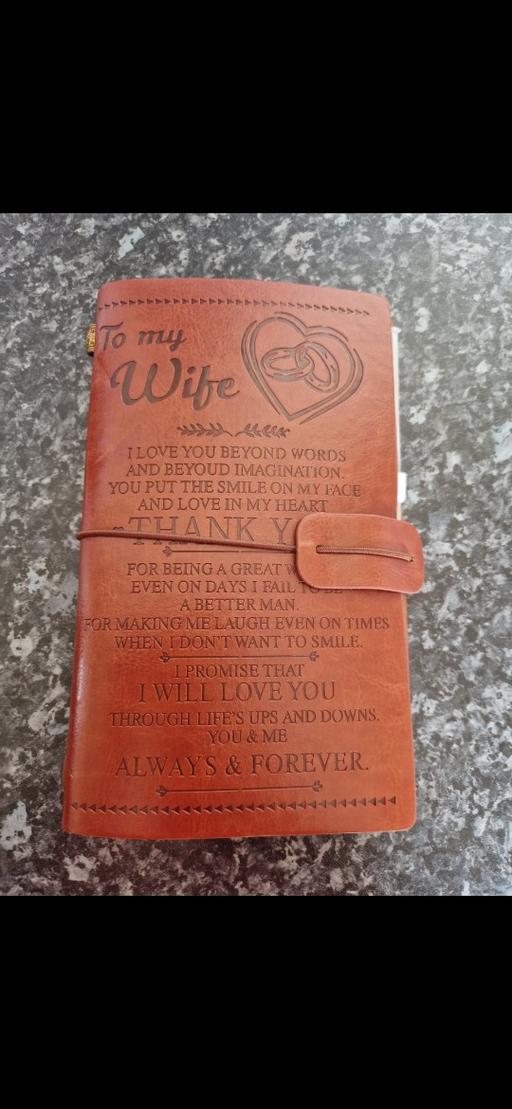 To my
Wife
I LOVE YOU BEYOND WORDS
AND BEYOUD IMAGINATION.
YOU PUT THE SMILE ON MY FACE
AND LOVE IN MY HEART
THANK
FOR BEING A GREAT
EVEN ON DAYS I FAIL TO BE
A BETTER MAN.
FOR MAKING ME LAUGH EVEN ON TIMES
WHEN I DON'T WANT TO SMILE.
I PROMISE THAT
I WILL LOVE YOU
THROUGH LIFE'S UPS AND DOWNS.
YOU & ME
ALWAYS & FOREVER.